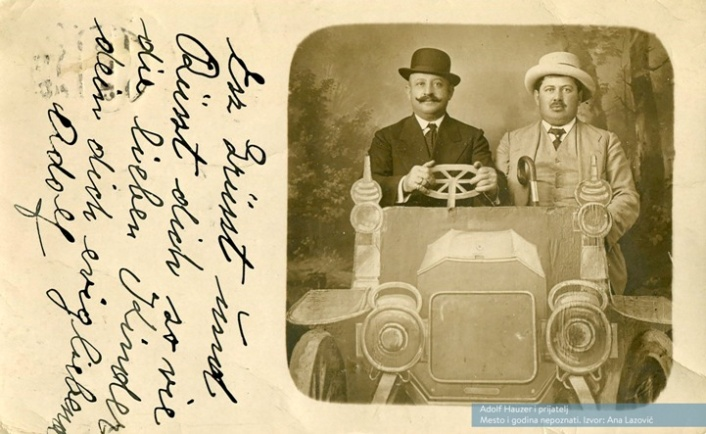 Es Grüsst und
Küsst dich so wie
die lieben Kinder
dein dich ewig liebend
Adolf
Adolf Hauzer i prijatelj
Mesto i godina nepoznati. Izvor: Ana Lazović